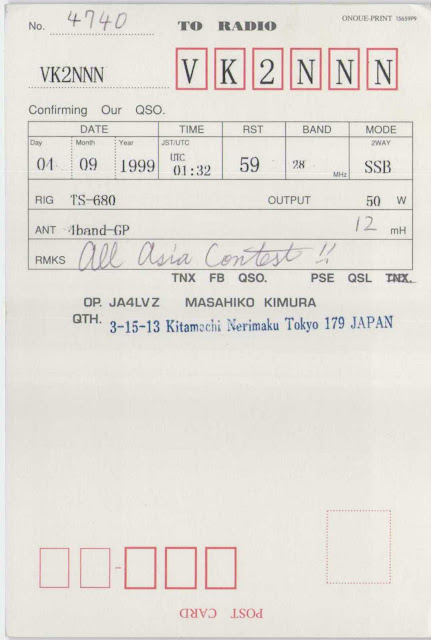 No. 4740 TO RADIO ONOUE-PRINT 15659P9
VK2NNN VK2NNN
Confirming Our QSO.
DATE TIME RST BAND MODE
Day Month Year JST/UTC 2WAY
04 09 1999 UTC 01:32 59 28 MHz SSB
RIG TS-680 OUTPUT 50 W
ANT 4band-GP 12 mH
RMKS All Asia Contest!!
TNX FB QSO. PSE QSL TNX.
OP. JA4LVZ MASAHIKO KIMURA
QTH. 3-15-13 Kitamachi Nerimaku Tokyo 179 JAPAN
POST CARD